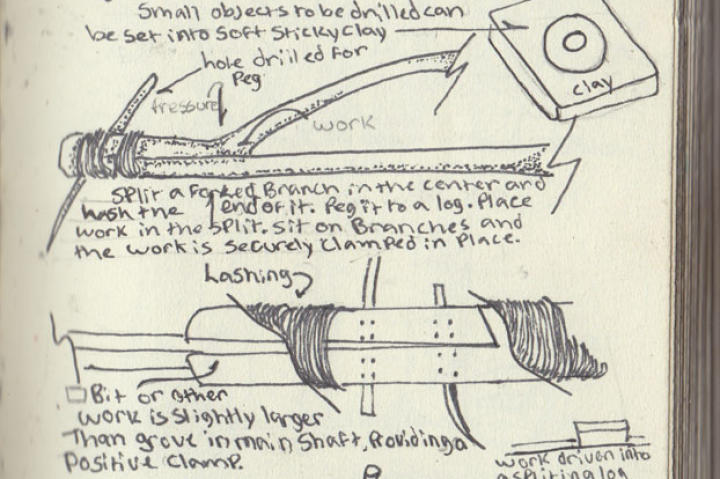 Small objects to be drilled can
be set into soft sticky clay
clay
hole drilled for
Peg
Pressure
work
Split a forked Branch in the center and
lash the end of it. Peg it to a log. Place
work in the split. Sit on Branches and
the work is securely clamped in place.
Lashing
Bit or other
work is slightly larger
Than grove in main shaft, Providing a
Positive clamp.
work driven into
a spliting log